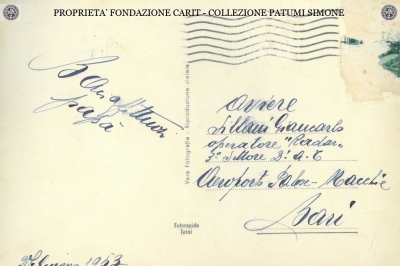 PROPRIETA' FONDAZIONE CARIT - COLLEZIONE PATUMI SIMONE
papà
Vera Fotografia - Riproduzione vietata
Fotorapida
Terni
Aviere
Giancarlo
operatore "Radar"
3° Settore D.A.T
Aeroporto Palese-Macchie
Bari
1953